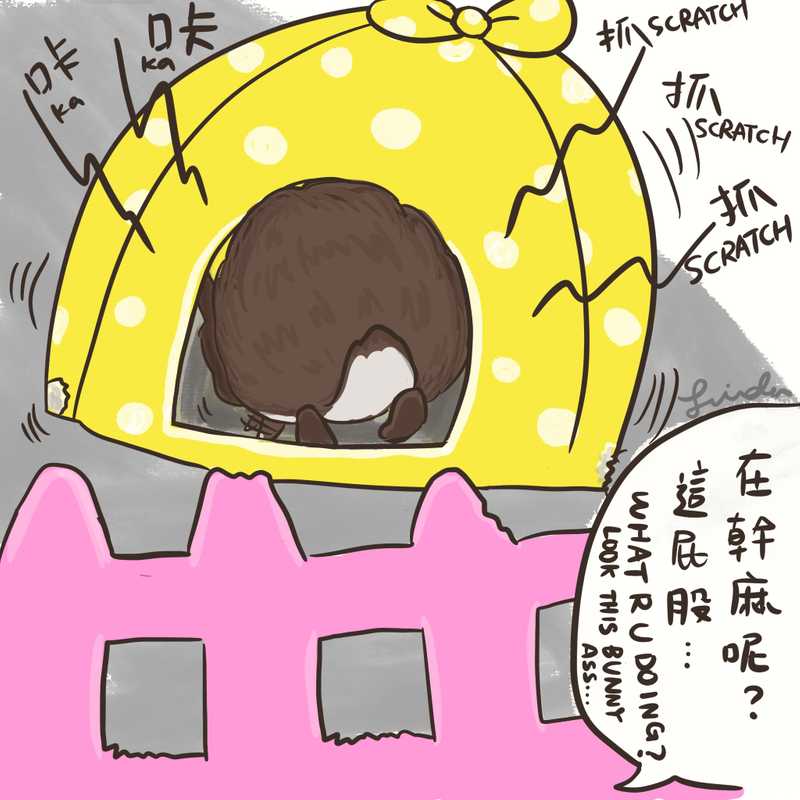 咔
ka
咔
ka
抓 SCRATCH
抓
SCRATCH
抓
SCRATCH
在幹麻呢?
這屁股...
WHAT R U DOING?
LOOK THIS BUNNY
ASS...